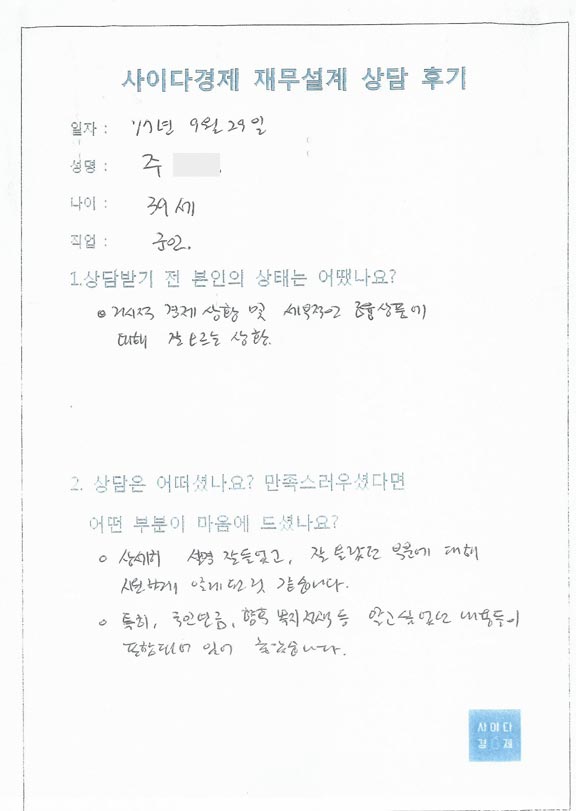 사이다경제 재무설계 상담 후기
일자 : '17년 9월 29일
성명 : 주
나이 : 39세
직업 : 군인.
1.상담받기 전 본인의 상태는 어땠나요?
거시적 경제 상황 및 세부적인 금융상품에
대해 잘 모르는 상황.
2. 상담은 어떠셨나요? 만족스러우셨다면
어떤 부분이 마음에 드셨나요?
상세히 설명 잘들었고, 잘 몰랐던 부분에 대해
시원하게 알게 된 것 같습니다.
특히, 국민연금, 향후 복지정책 등 알고 싶었던 내용들이
포함되어 있어 좋았습니다.
사이다
경제